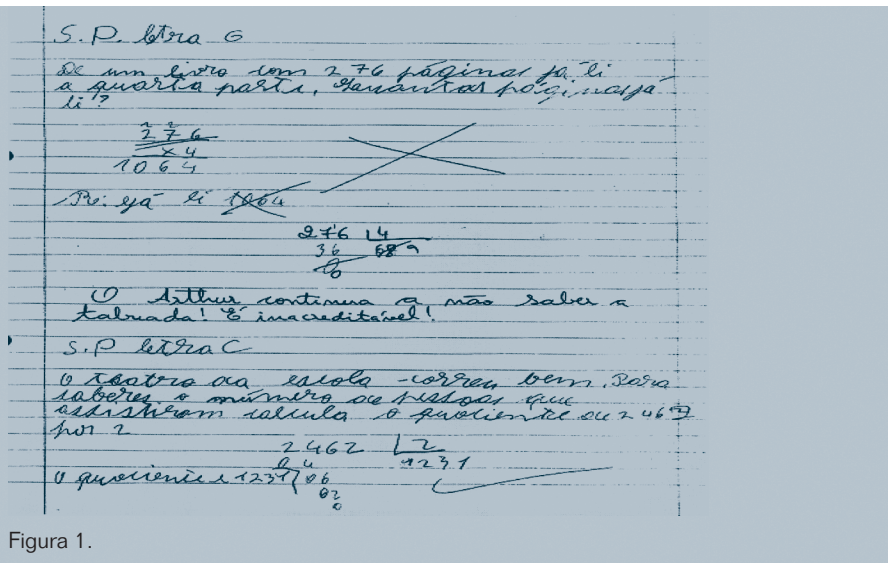 S.P. letra G
De um livro com 276 páginas já li
a quarta parte. Quantas páginas já
li?
2 2
276
x 4
1064
R: já li 1064
276 4
36 69
0
O Arthur continua a não saber a
tabuada! É inacreditável!
S.P letra C
O teatro da escola correu bem. Para
saberes o número de pessoas que
assistiram calcula o quociente de 2462
por 2
2462 2
04 1231
O quociente é 1231 06
02
0
Figura 1.